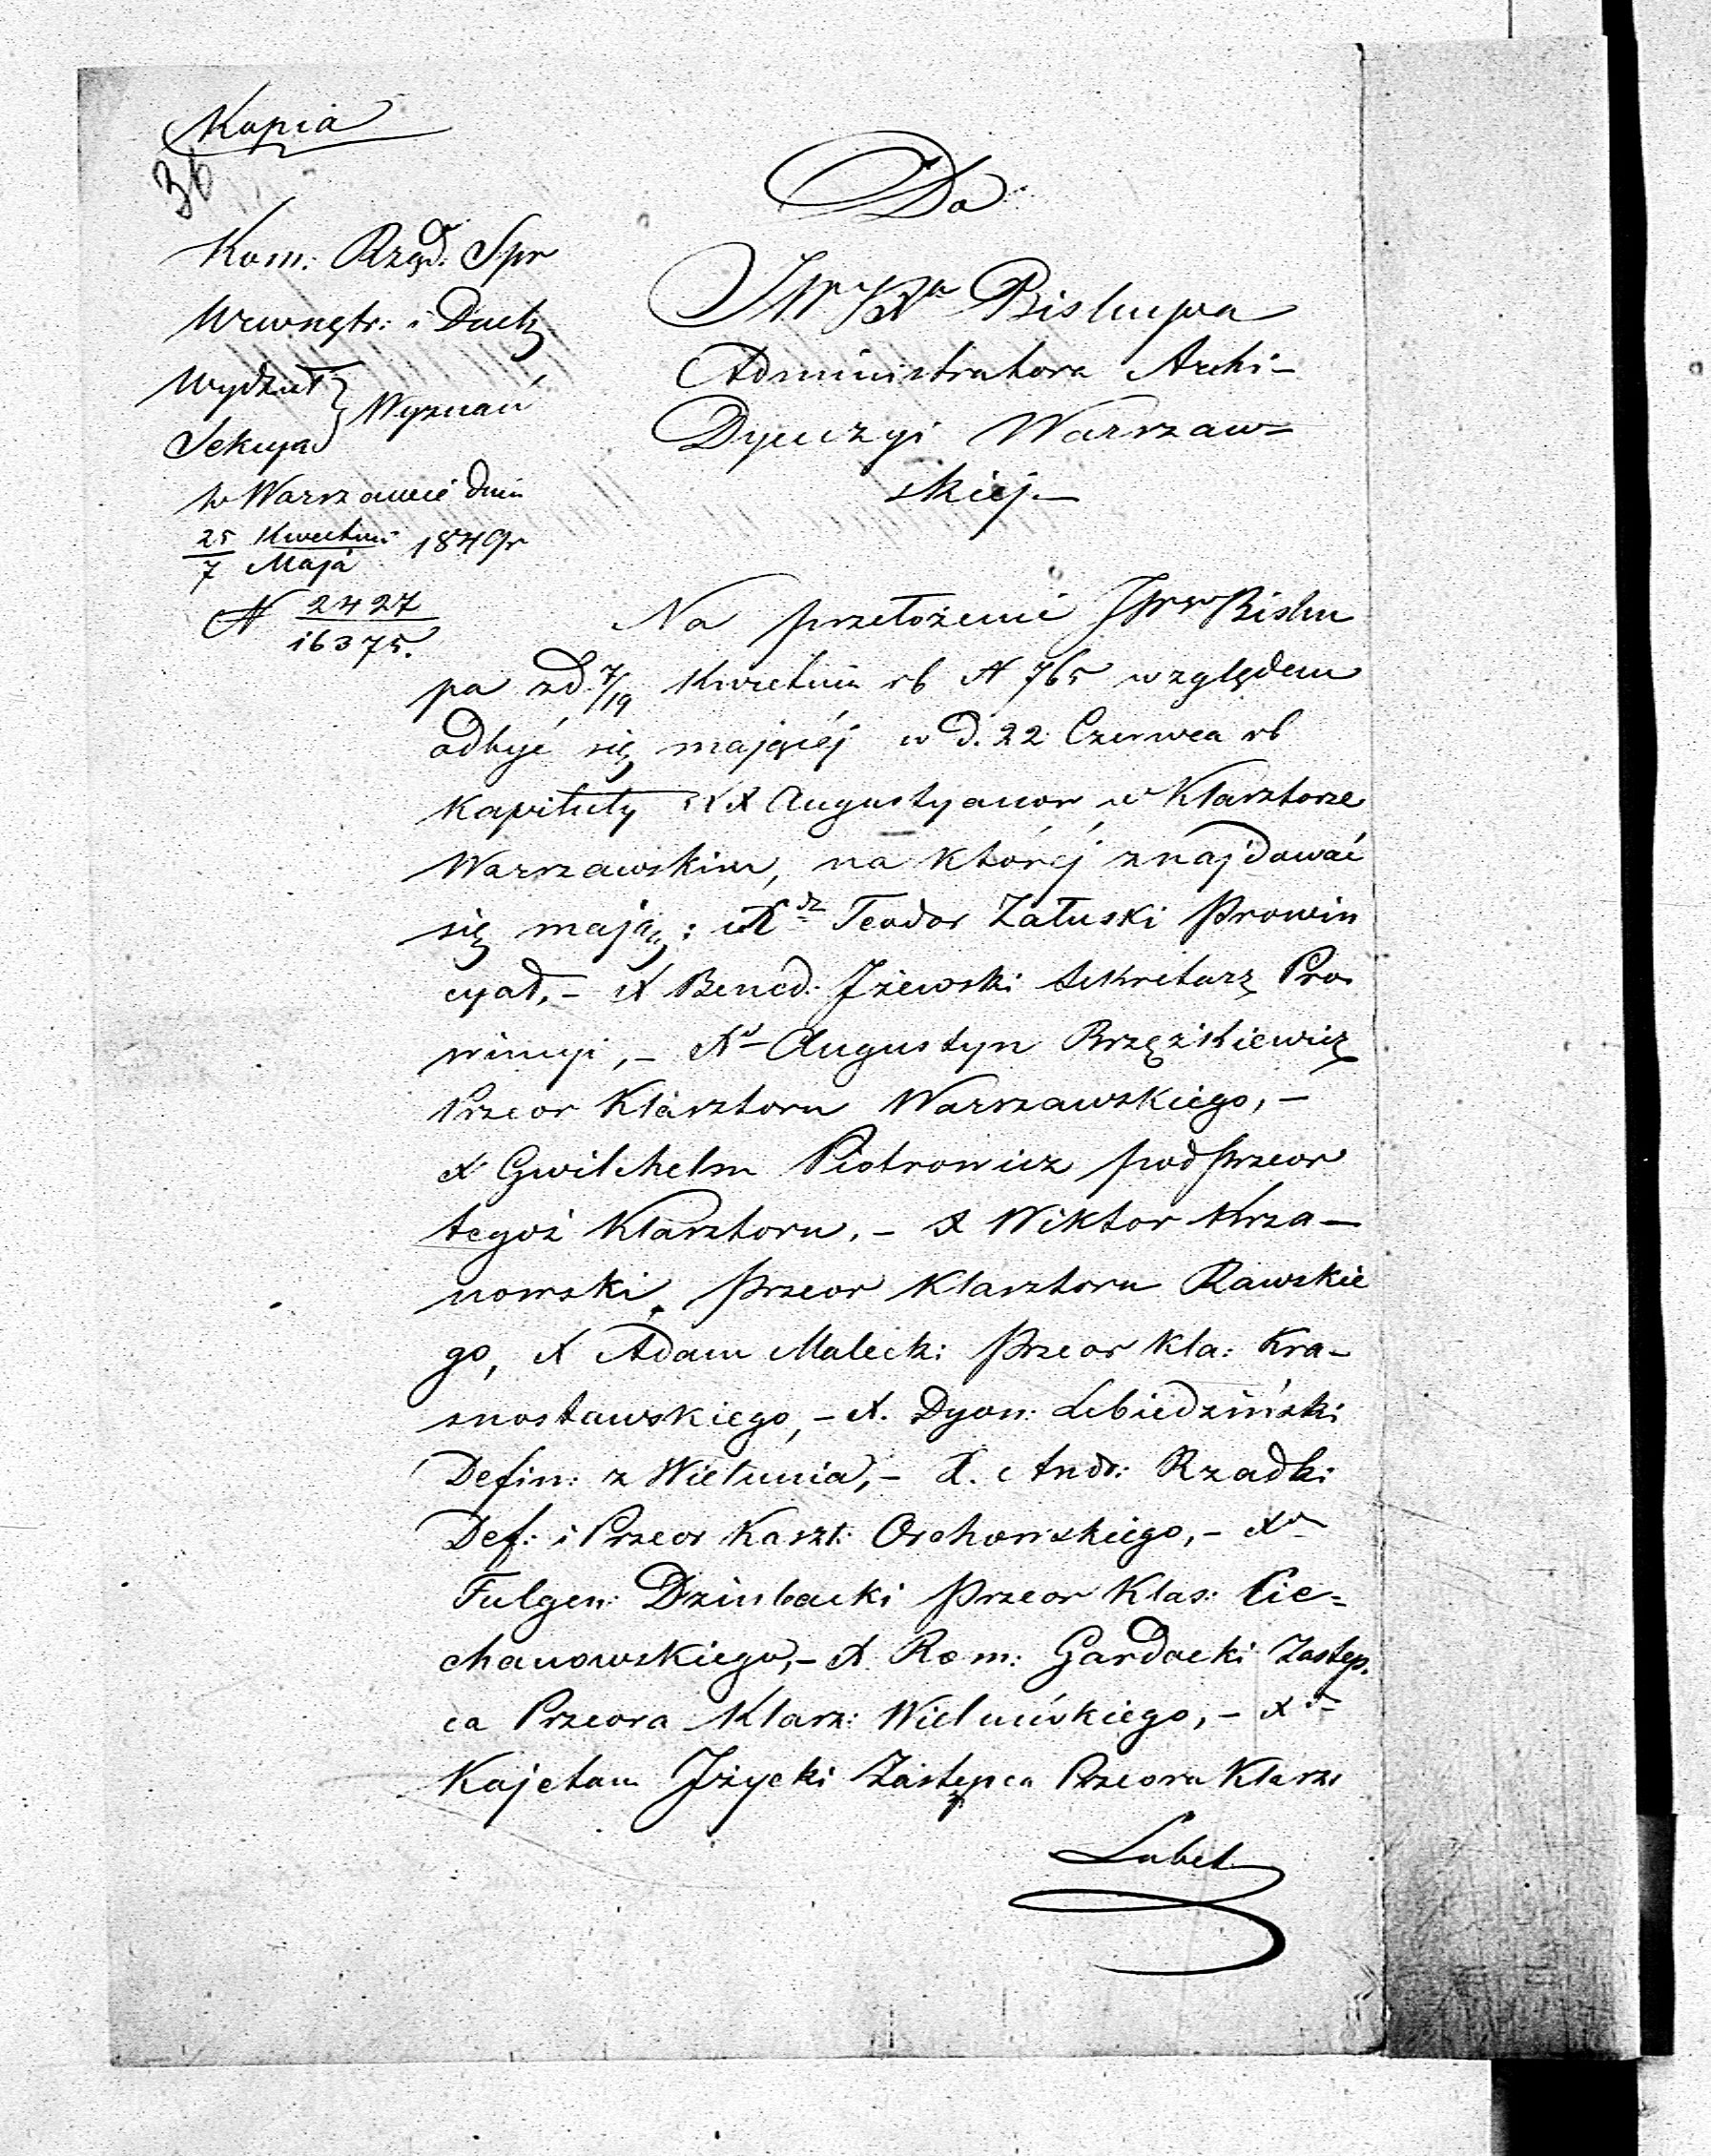 Kopia
36
Kom: Rząd. Spr
Wewnętr: i Duch
Wydział
Sekcya
Wyznań
w Warszawie dnia
25 Kwietnia
7 Maja
1840 r
N 2427
16375.
Do
JW JXa Biskupa
Administratora Archi-
Dyecezyi Warszaw=
skiej.-
Na przełożenie JWw Bisku
pa zd 7/19 Kwietnia rb N 765 względem
odbyć się mającéj w d. 22 Czerwca rb
Kapituły XX Augustyanow w Klasztorze
Warszawskim, na któréj znajdować
się mają: Xdz Teodor Załuski Prowin
cyał, - X Bened: Jżewski Sekretarz Pro
wincyi, - X Augustyn Brzęzkiewicz
Przeor Klasztoru Warszawskiego, -
X Gwilchelm Piotrowicz podprzeor
tegoż Klasztoru, - X Wiktor Krza-
nowski, przeor Klasztoru Rawskie
go, X Adam Malecki Przeor Kla: Kra-
snostawskiego, - X. Dyon: Lebiedziński
Defin: z Wielunia, - X. Andr: Rzadki
Def: i Przeor Kaszt: Orchowskiego, - X
Fulgen: Dzinbacki Przeor Klas: Cie=
chanowskiego, - X. Rom: Gardacki Zastęp.
ca Przeora Klasz: Wieluńskiego, - X
Kajetan Jżycki Zastępca Przeora Klasz:
Lubel